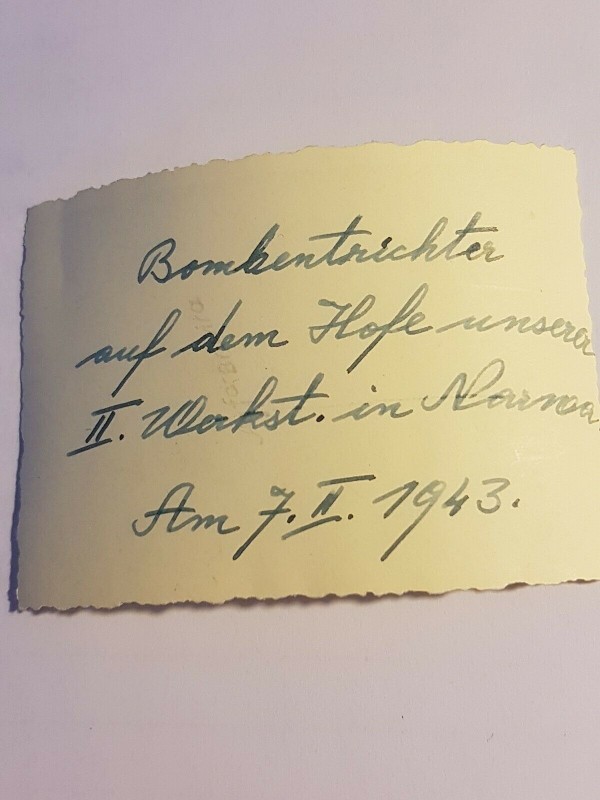 Bombentrichter
auf dem Hofe unserer
II. Werkst. in Narwa.
Am 7. II. 1943.